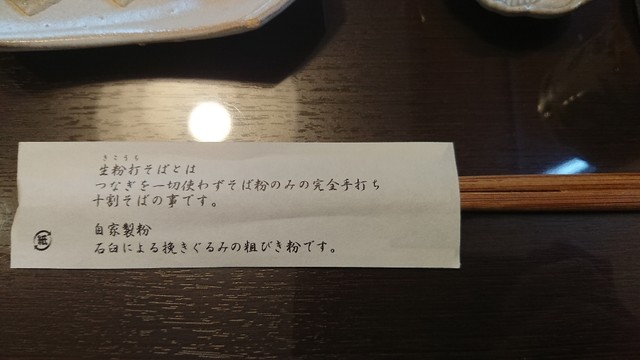 きこうち
生粉打そばとは
つなぎを一切使わずそば粉のみの完全手打ち
十割そばの事です。
自家製粉
石臼による挽きぐるみの粗びき粉です。
紙